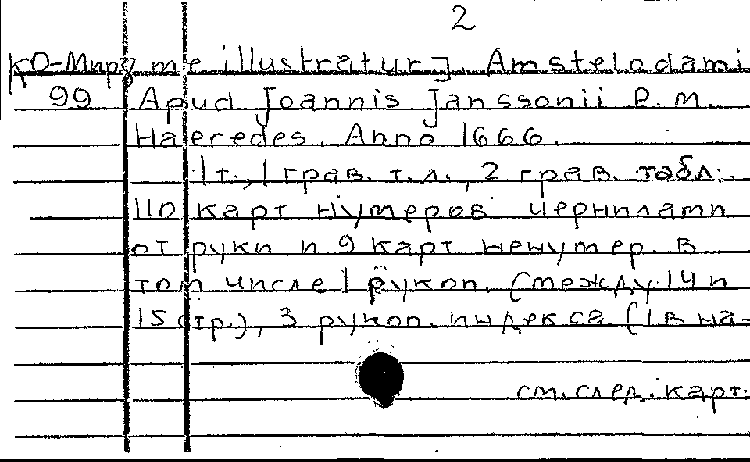 2
КО-Мир/ me illustratur]. Amstelodami
99 Apud Joannis Janssonii P. M.
Haeredes. Anno 1666.
1 т., 1 грав. т. л., 2 грав. табл.
110 карт нумеров чернилами
от руки и 9 карт ненумер. в
том числе 1 рукоп. (между 14 и
15 стр.), 3 рукоп. индекса (1 в на-
см. след. карт.